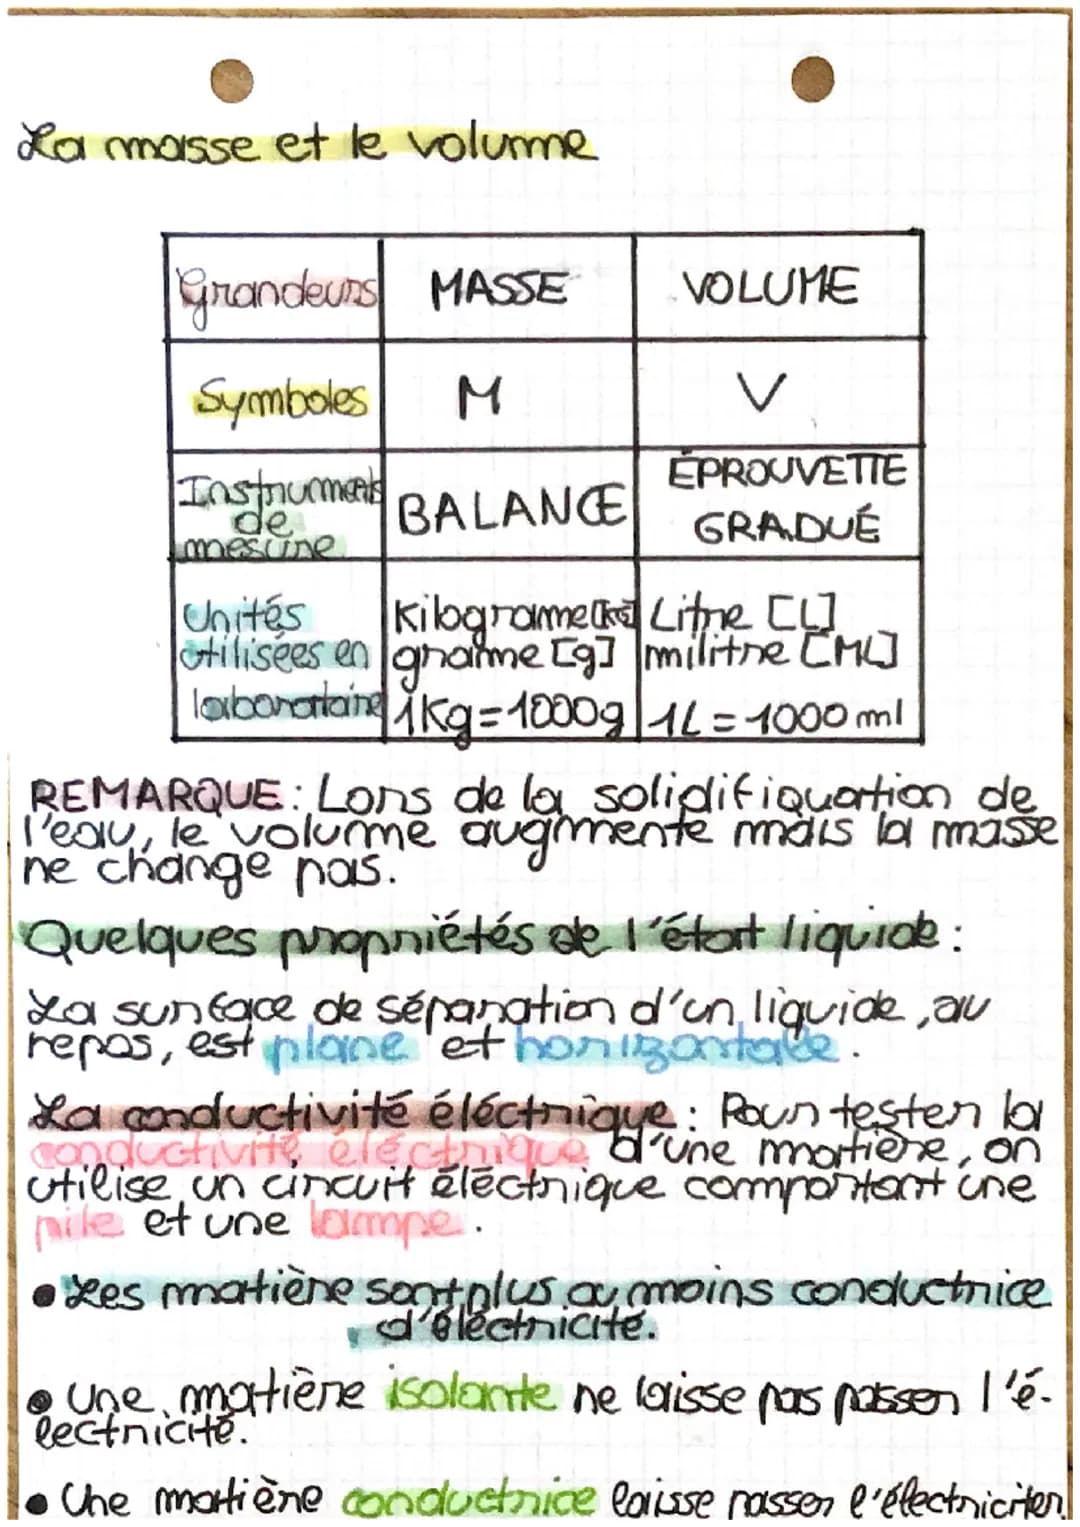 La masse et le volume
Grandeurs MASSE VOLUME
Symboles M V
Instruments de mesure BALANCE ÉPROUVETTE GRADUÉ
Unités utilisées en laboratoire Kilogramme [kg] gramme [g] 1Kg=1000g Litre [L] militre [ML] 1L=1000 ml
REMARQUE: Lors de la solidifiquation de
l'eau, le volume augmente mais la masse
ne change pas.
Quelques propriétés de l'état liquide :
La surface de séparation d'un liquide, au
repos, est plane et horizontale.
La conductivité éléctrique : Pour tester la
conductivité éléctrique d'une matière, on
utilise un circuit éléctrique comportant une
pile et une lampe.
• Les matière sont plus ou moins conductrice
d'éléctricité.
• Une matière isolante ne laisse pas passer l'é-
lectricité.
• Une matière conductrice laisse passer l'électriciter.